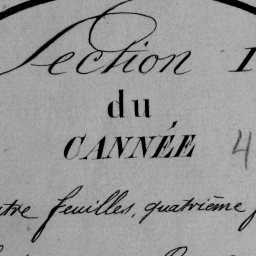 Section 1
du
CANNÉE 4
tre feuilles, quatrième